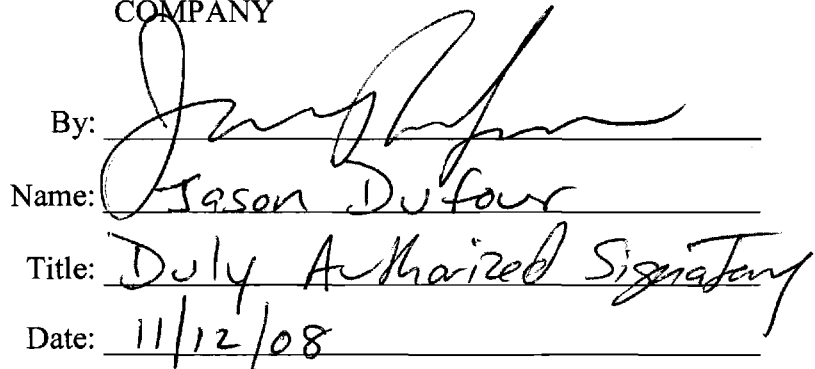 COMPANY
By:
Name: Jason Dufour
Title: Duly Authorized Signatory
Date: 11/12/08